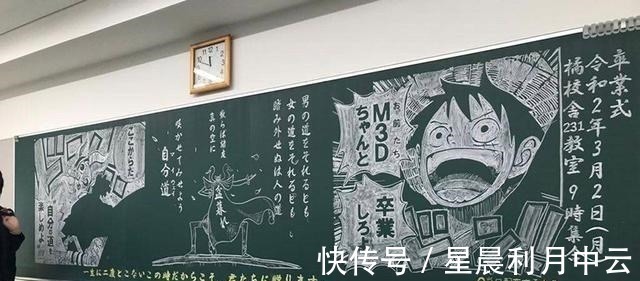 卒業式
令和2年3月2日(月
橘校舎231教室 9時集合
お前たち
M3D
ちゃんと
卒業
しろ
男の道をそれるとも
女の道をそれるとも
踏み外せぬは人の道
散らば諸友
真の空に
咲かせてみせよう
自分道
盆暮れ
ここからだ
自分の道を
楽しめよ
一生に二度とこないこの時だからこそ、君たちに贈ります
快传号 / 星晨利月中云